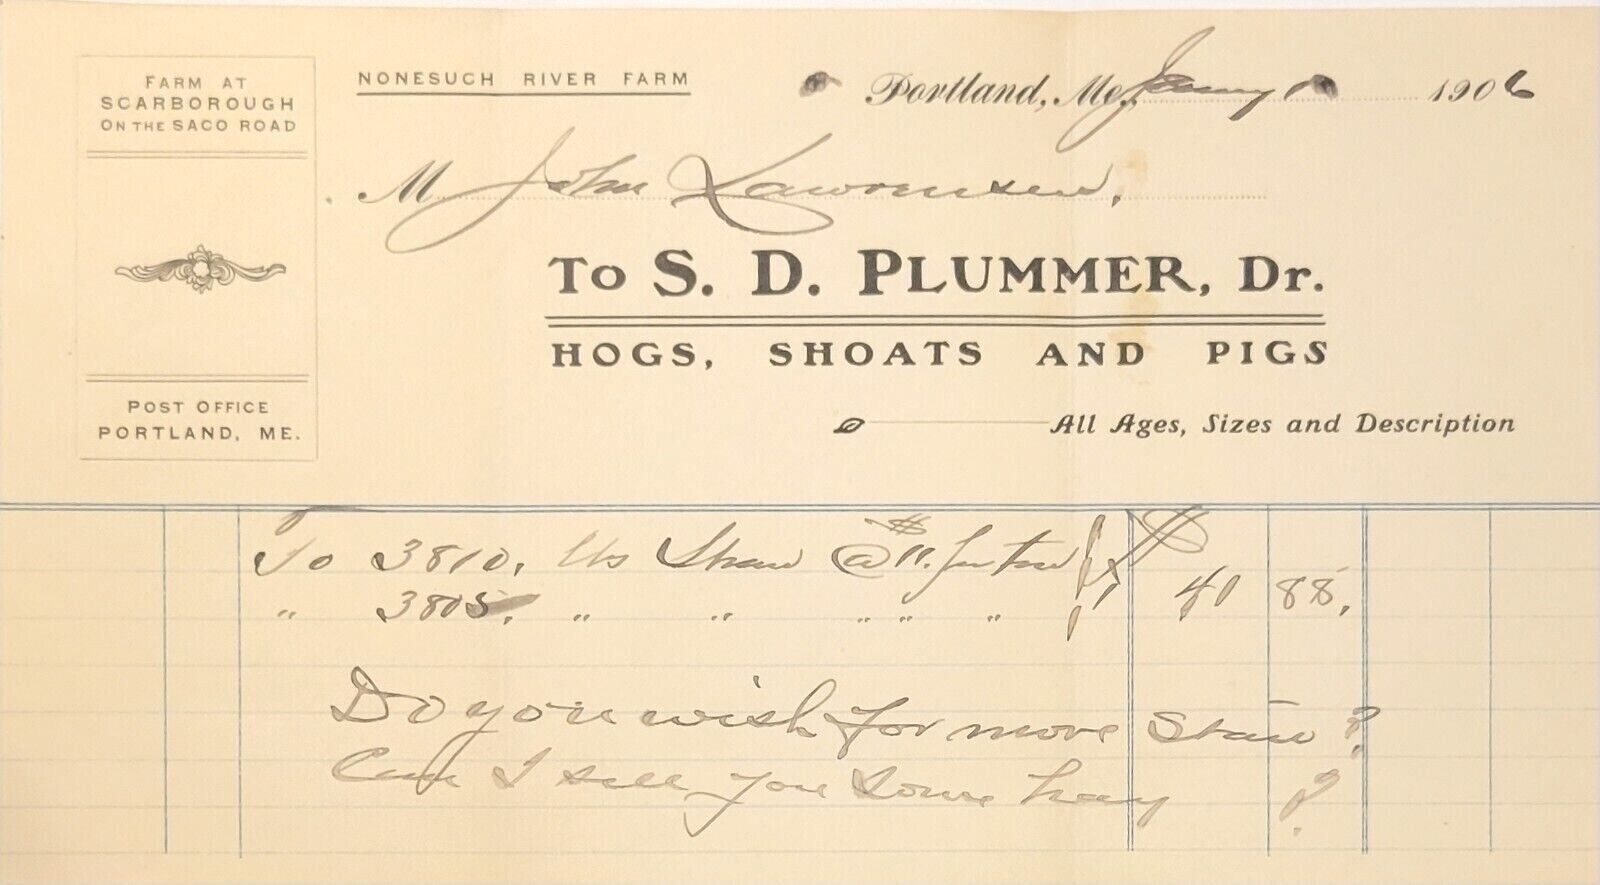 FARM AT
SCARBOROUGH
ON THE SACO ROAD
NONESUCH RIVER FARM
Portland, Me., 1 1906
M John
TO S. D. PLUMMER, Dr.
HOGS, SHOATS AND PIGS
All Ages, Sizes and Description
POST OFFICE
PORTLAND, ME.
To 3810, lbs Straw @ $11. per ton } $
" 3805, " " " " " } 41 88.
Do you wish for more Straw?
Can I sell you some hay ?